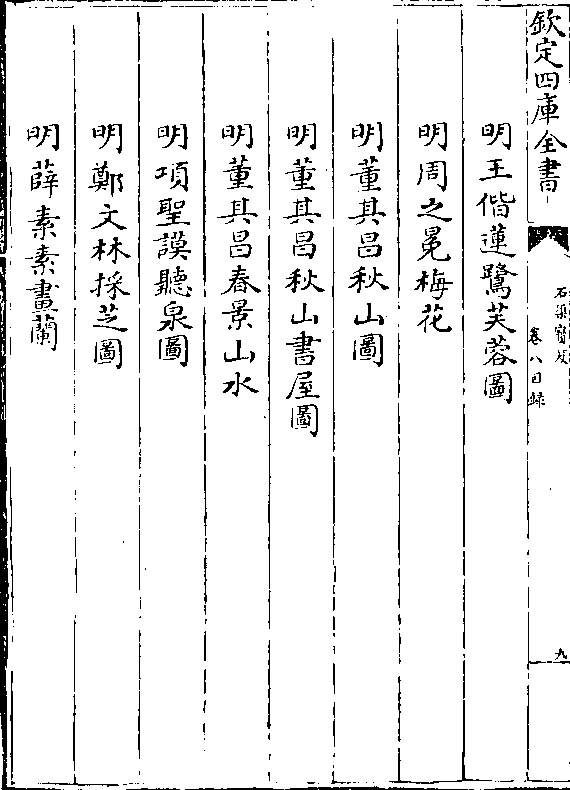 欽定四庫全書
石渠寶笈
卷八目録
九
明王偕蓮鷺芙蓉圖
明周之冕梅花
明董其昌秋山圖
明董其昌秋山書屋圖
明董其昌春景山水
明項聖謨聽泉圖
明鄭文林採芝圖
明薛素素畫蘭